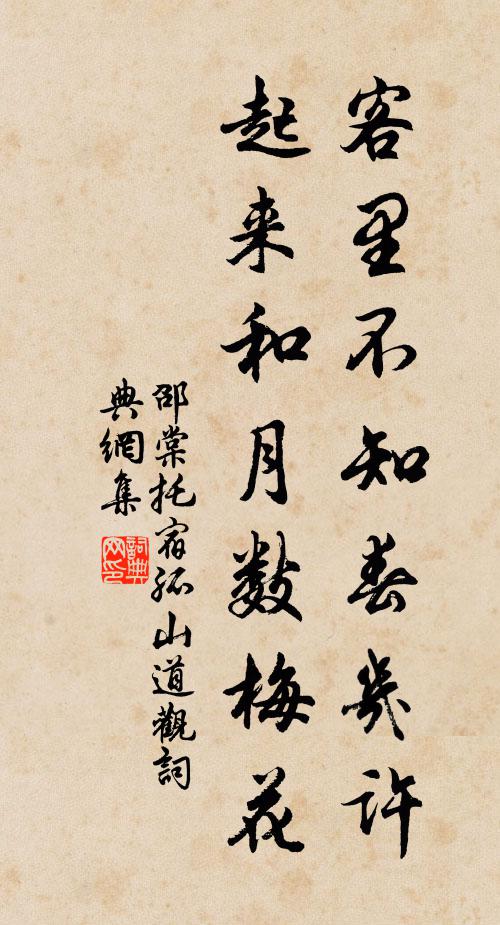 客里不知春幾許
起来和月数梅花
邵棠托宿孤山道觀詞
典網集
詞典
网印